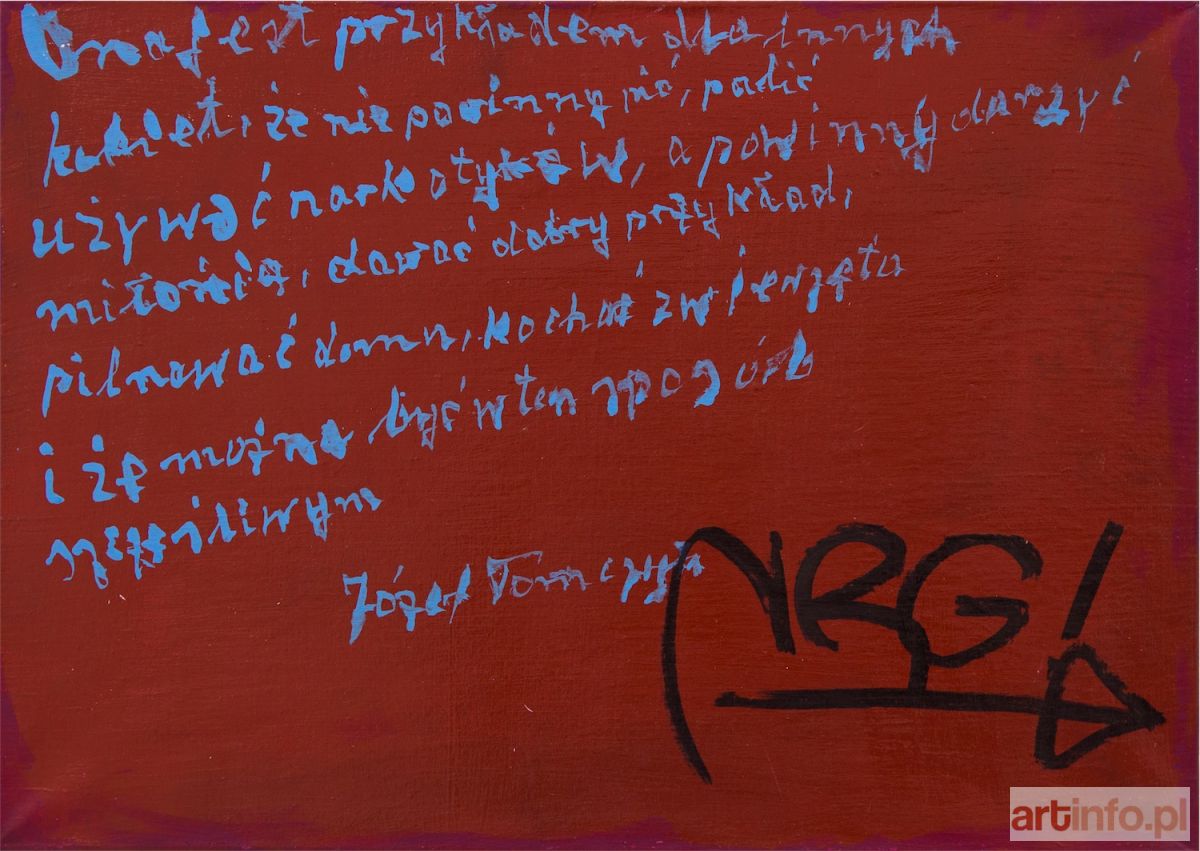 Ona jest przykładem dla innych
kobiet, że nie powinny pić, palić
używać narkotyków, a powinny darzyć
miłością, dawać dobry przykład,
pilnować domu, kochać zwierzęta
i że można być w ten sposób
szczęśliwym
Józef Tomczyk
NRG!
artinfo.pl